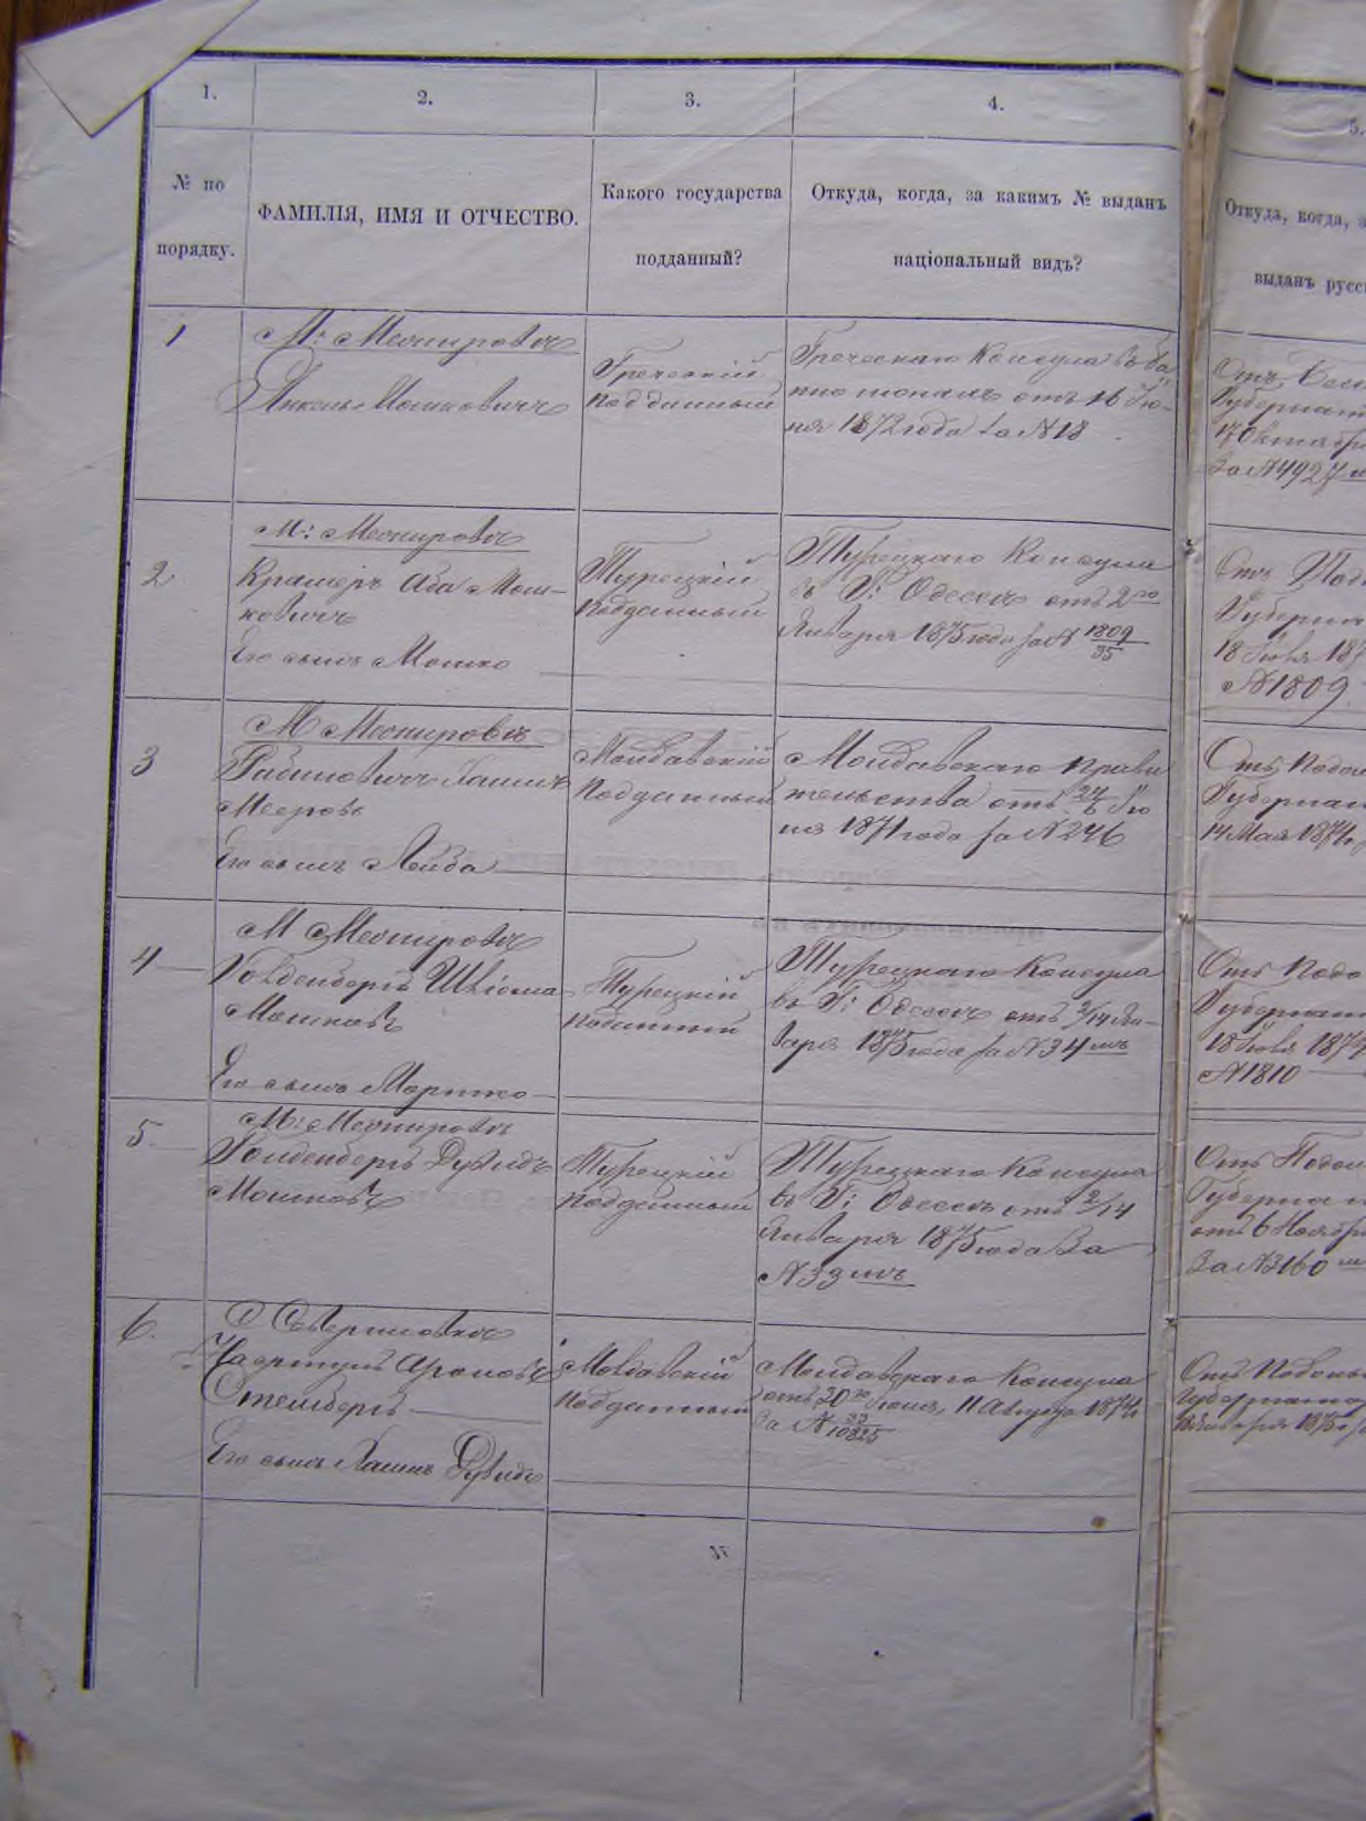 1.
2.
3.
4.
5.
№ по
порядку.
ФАМИЛІЯ, ИМЯ И ОТЧЕСТВО.
Какого государства
подданный?
Откуда, когда, за какимъ № выданъ
національный видъ?
Откуда, когда, з
выданъ русс
1
М: Межировъ
Янкель Мошковичъ
Греческій
подданный
Греческаго Консула
отъ 16 Iю-
ня 1872 года за №18
Отъ
Губернат
17 Октября
За №4927
2
М: Межировъ
Крамеръ Аба Мош-
ковичъ
Его сынъ Мошко
Турецкій
подданный
Турецкаго Консула
въ Г: Одессѣ отъ 2го
Января 1875 года за № 1809/35
Отъ Под
Губерна
18 Iюля 187
№1809
3
М Межировъ
Рабиновичъ Хаимъ
Мееровъ
Его сынъ Лейба
Молдавскій
Подданный
Молдавскаго Прави
тельства отъ 24/6 Iю
ня 1871 года за №246
Отъ Подол
Губернат
14 Мая 1874
4
М Межировъ
Голденбергъ Шліома
Мошковъ
Его сынъ Мортко
Турецкій
подданный
Турецкаго Консула
въ Г: Одессѣ отъ 2/14 Ян-
варя 1875 года за №34мъ
Отъ Подо
Губернат
18 Iюля 187
№1810
5
М: Межировъ
Голденбергъ Дувидъ
Мошковъ
Турецкій
подданный
Турецкаго Консула
въ Г: Одессѣ отъ 2/14
Января 1875 года За
№33мъ
Отъ Подол
Губерна
отъ 6 Ноября
За №3160
6.
Ароновъ
Стембергъ
Его сынъ Хаимъ Дувидъ
Молдавскій
подданный
Молдавскаго Консула
отъ 20го Iюля, 11 Августа 1874
За № 33/10825
Отъ Подоль
Губернато
Января 1875